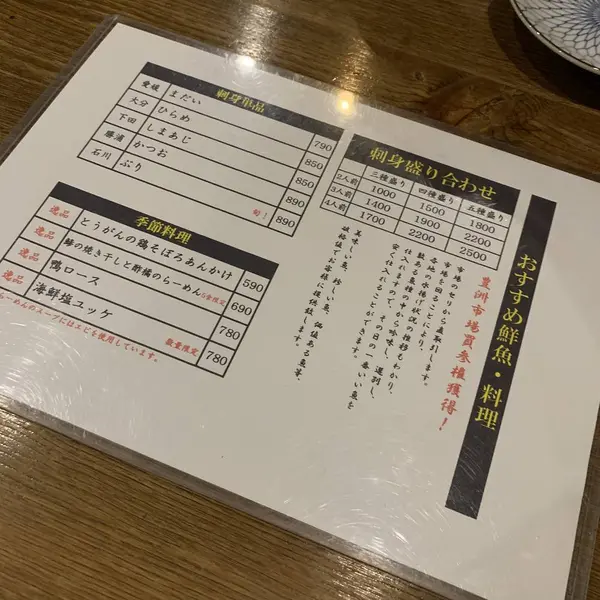 おすすめ鮮魚・料理
豊洲市場買参権獲得！
市場のセリから直取引します。
市場を回ることにより、
各地の水揚げ状況の推移もわかり、
数ある魚種の中から吟味し、選別し、
仕入れますので、その日の一番いい魚を
安く仕入れることができます。
美味しい魚、珍しい魚、価値ある魚菜、
破格値でお客様に提供致します。
刺身盛り合わせ
三種盛り 四種盛り 五種盛り
2人前 1000 1500 1800
3人前 1400 1900 2200
4人前 1700 2200 2500
刺身単品
愛媛 まだい 790
大分 ひらめ 850
下田 しまあじ 850
勝浦 かつお 890
石川 ぶり 旬！ 890
季節料理
逸品 とうがんの鶏そぼろあんかけ 590
逸品 鯵の焼き干しと酢橘のらーめん 5食限定 690
逸品 鴨ロース 780
逸品 海鮮塩ユッケ 数量限定 780
らーめんのスープにはエビを使用しています。